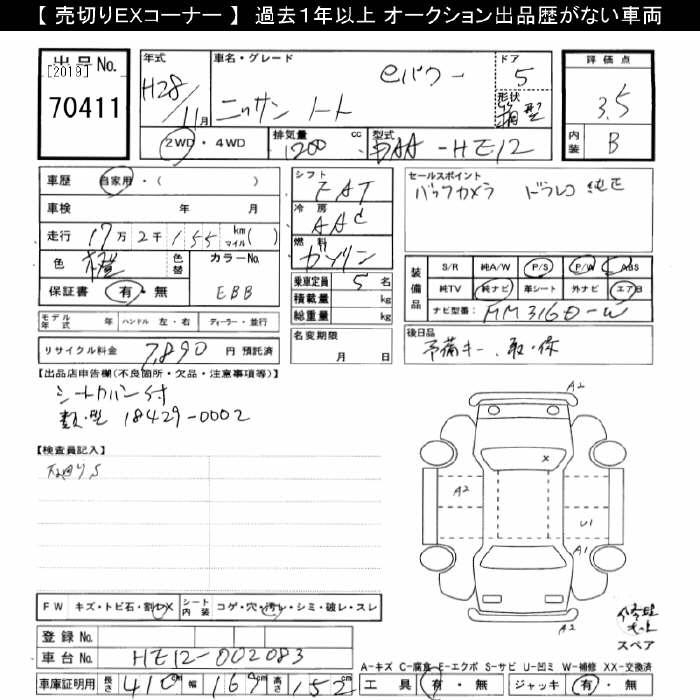 【 売切りEXコーナー 】 過去1年以上 オークション出品歴がない車両
出品No.
[2019]
70411
年式
H28/11月
車名・グレード
ニッサン ノート eパワー
ドア
5
形状
箱型
評価点
3.5
内装
B
2WD・4WD
排気量 1200 cc
型式 DAA-HE12
車歴 自家用・( )
車検 年 月
走行 17万2千155 km マイル( )
色 橙 色替
カラーNo. EBB
保証書 有・無
シフト FAT
冷房 AAC
燃料 ガソリン
乗車定員 5 名
積載量 kg
総重量 kg
名変期限 月 日
セールスポイント
バックカメラ ドラレコ 純正
装備品
S/R 純A/W P/S P/W ABS
純TV 純ナビ 革シート 外ナビ エアB
ナビ型番: MM316D-W
後日品
予備キー、取・保
モデル年式 年 ハンドル 左・右 ディーラー・並行
リサイクル料金 7,890 円 預託済
【出品店申告欄(不良箇所・欠品・注意事項等)】
シートカバー付
類・型 18429-0002
【検査員記入】
A2
X
A2
U1
A1
A2
スペア
FW キズ・トビ石・割レX
シート内装 コゲ・穴・汚レ・シミ・破レ・スレ
登録No.
車台No. HE12-002083
車庫証明用 長さ 410 幅 169 高さ 152
A-キズ C-腐食 E-エクボ S-サビ U-凹ミ W-補修 XX-交換済
工具 有・無 ジャッキ 有・無